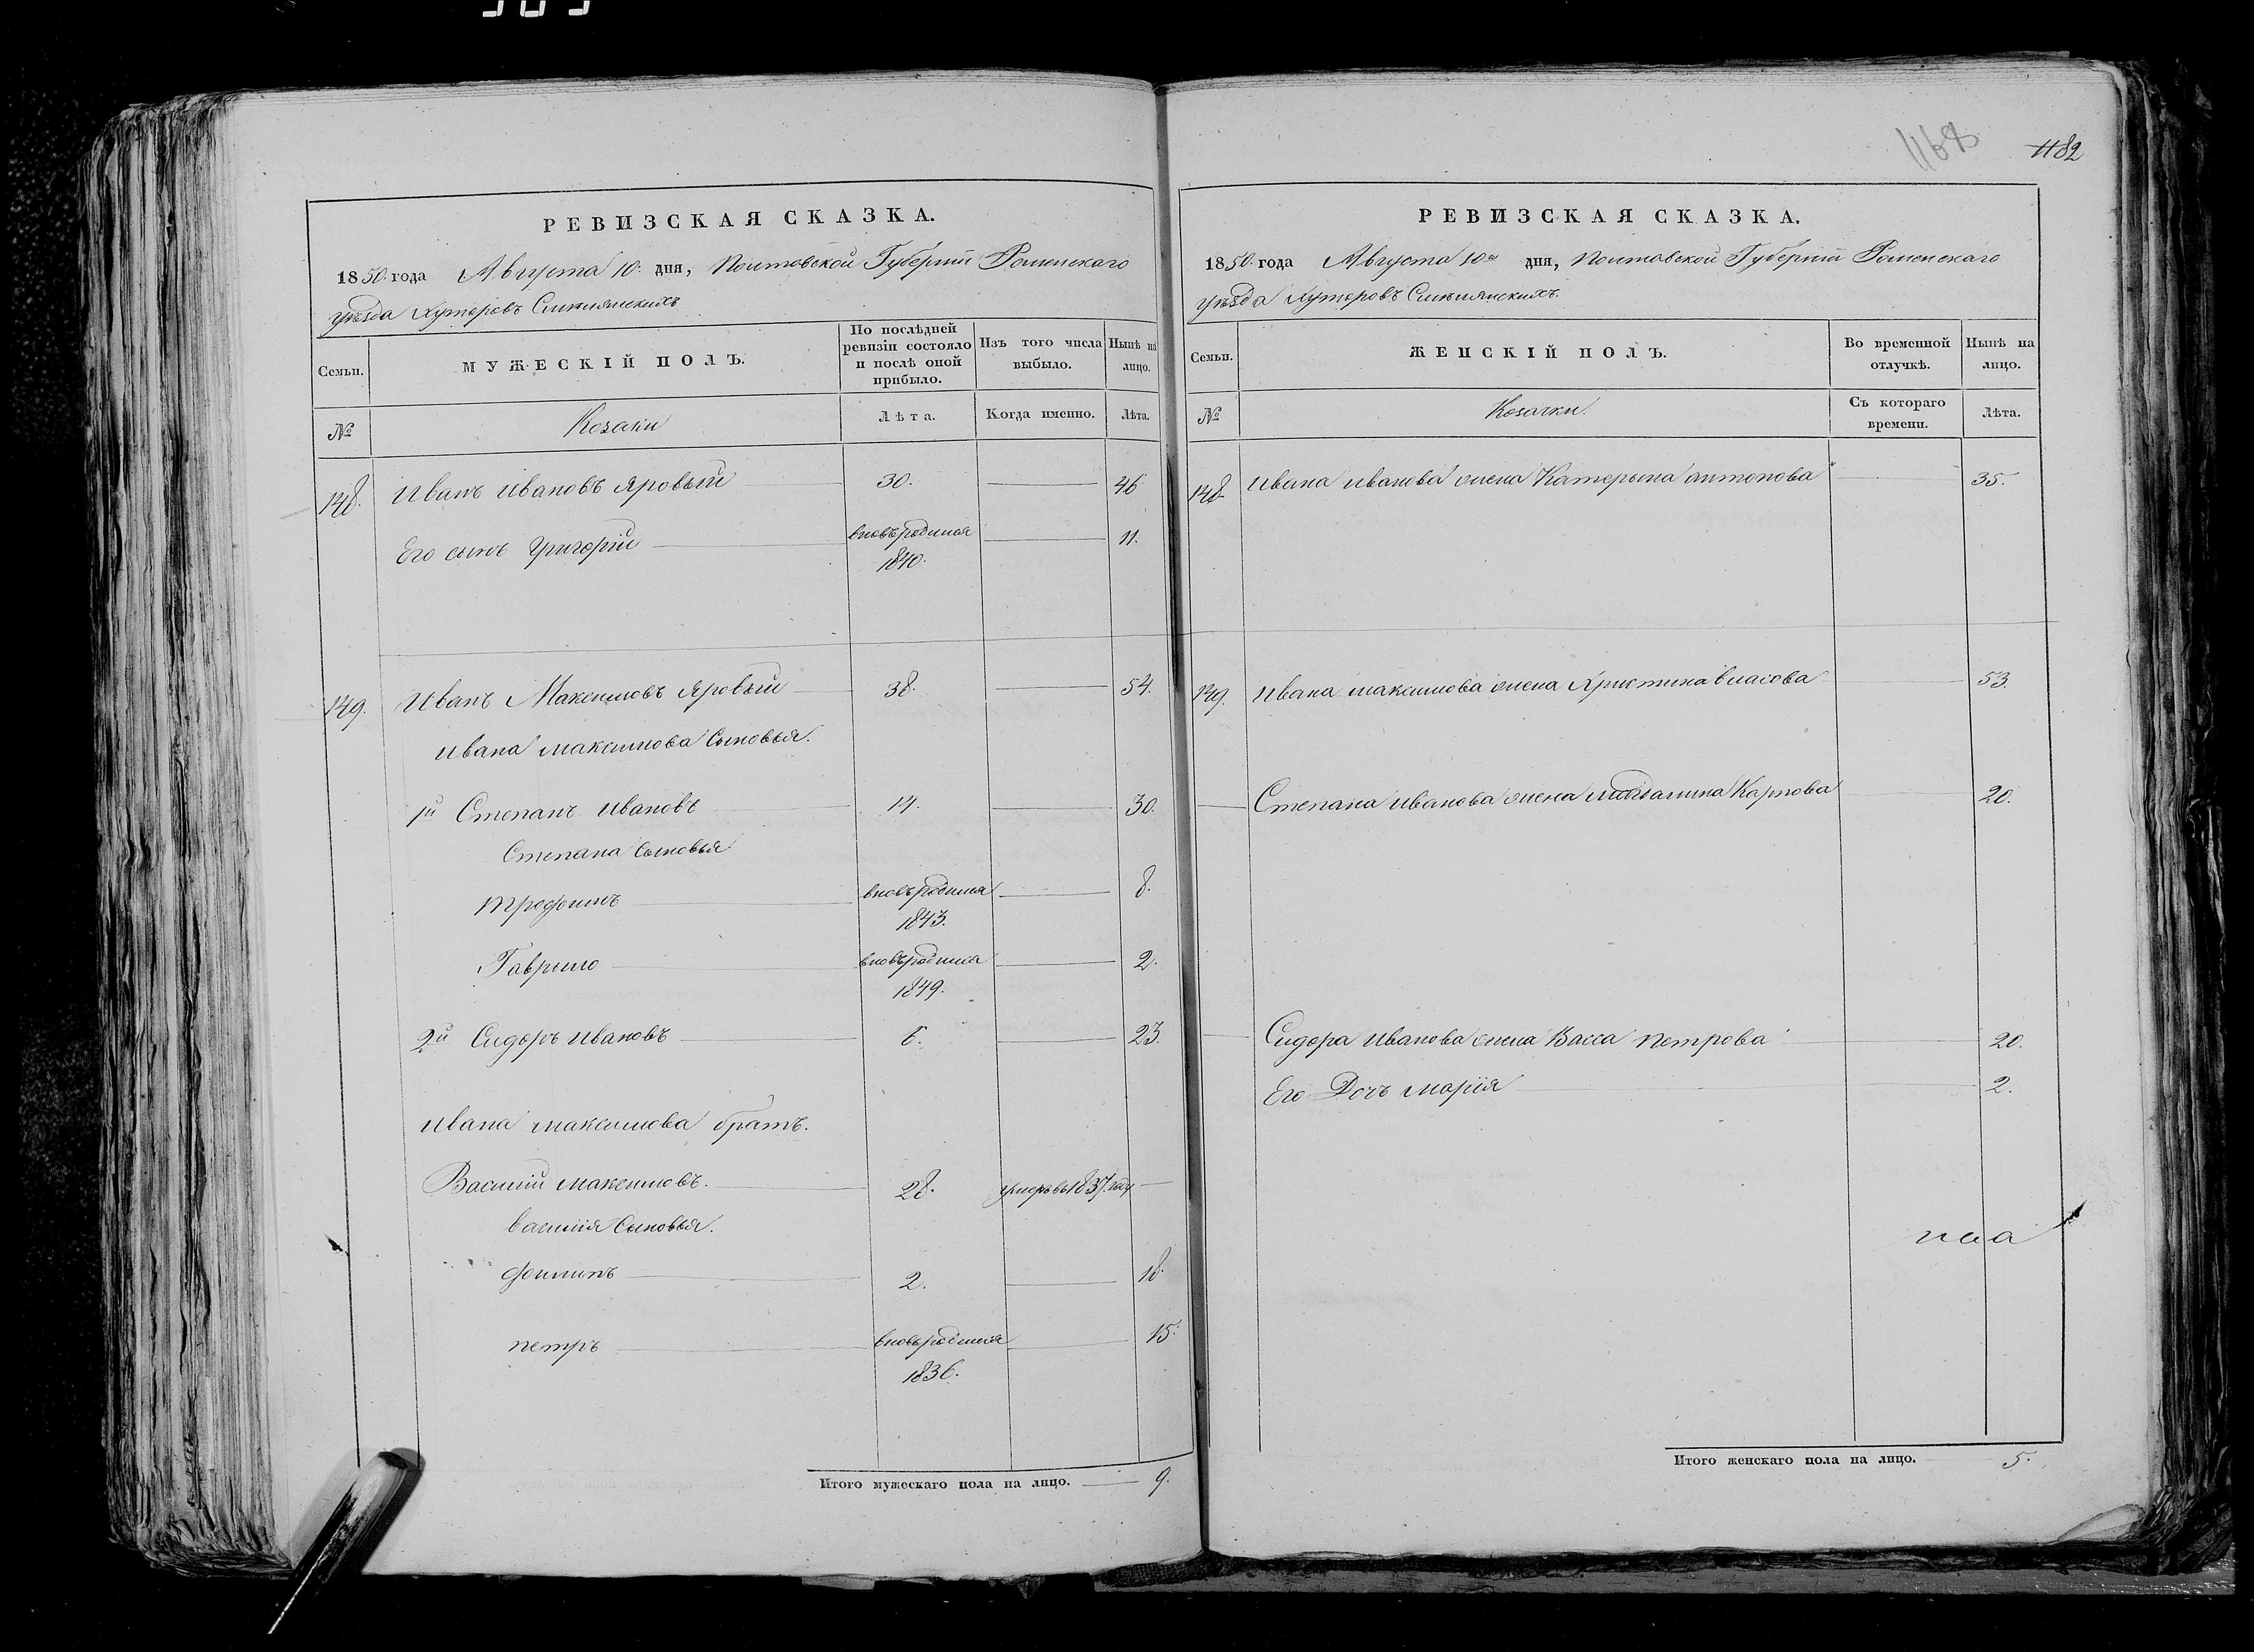 1168
1182
РЕВИЗСКАЯ СКАЗКА.
1850 года Августа 10 дня, Полтовской Губернiи Роменскаго
уѣзда Хуторовъ
Семьи.
МУЖЕСКІЙ ПОЛЪ.
По послѣдней ревизіи состояло и послѣ оной прибыло.
Изъ того числа выбыло.
Нынѣ на лицо.
№
Козаки
Лѣта.
Когда именно.
Лѣта.
148. Иванъ Ивановъ Яровый 30. 46
Его сынъ Григорій вновьродился 1840. 11.
149. Иванъ Максимовъ Яровый 38. 54.
Ивана Максимова Сыновья.
1й Степанъ Ивановъ 14. 30.
Степана Сыновья
Трофимъ вновьродился 1843. 8.
Гаврыло вновьродился 1849. 2.
2й Сидоръ Ивановъ 23.
Ивана Максимова братъ.
Василий Максимовъ. 28. умеръ въ 1837. году
Василия Сыновья.
Филипъ 2. 18.
Петръ вновьродился 1836. 15.
Итого мужескаго пола на лицо. 9.
РЕВИЗСКАЯ СКАЗКА.
1850 года Августа 10го дня, Полтовской Губерніи Роменскаго
уѣзда Хуторовъ
Семьи.
ЖЕНСКІЙ ПОЛЪ.
Во временной отлучкѣ.
Нынѣ на лицо.
№
Козачки.
Съ котораго времени.
Лѣта.
148. Ивана Иванова жена Катерына Антонова 35.
149. Ивана Максимова жена Христина Власова 53.
Степана Иванова жена Карпова 20.
Сидора Иванова жена Васса Петрова 20.
Его Дочь Марія 2.
Итого женскаго пола на лицо. 5.